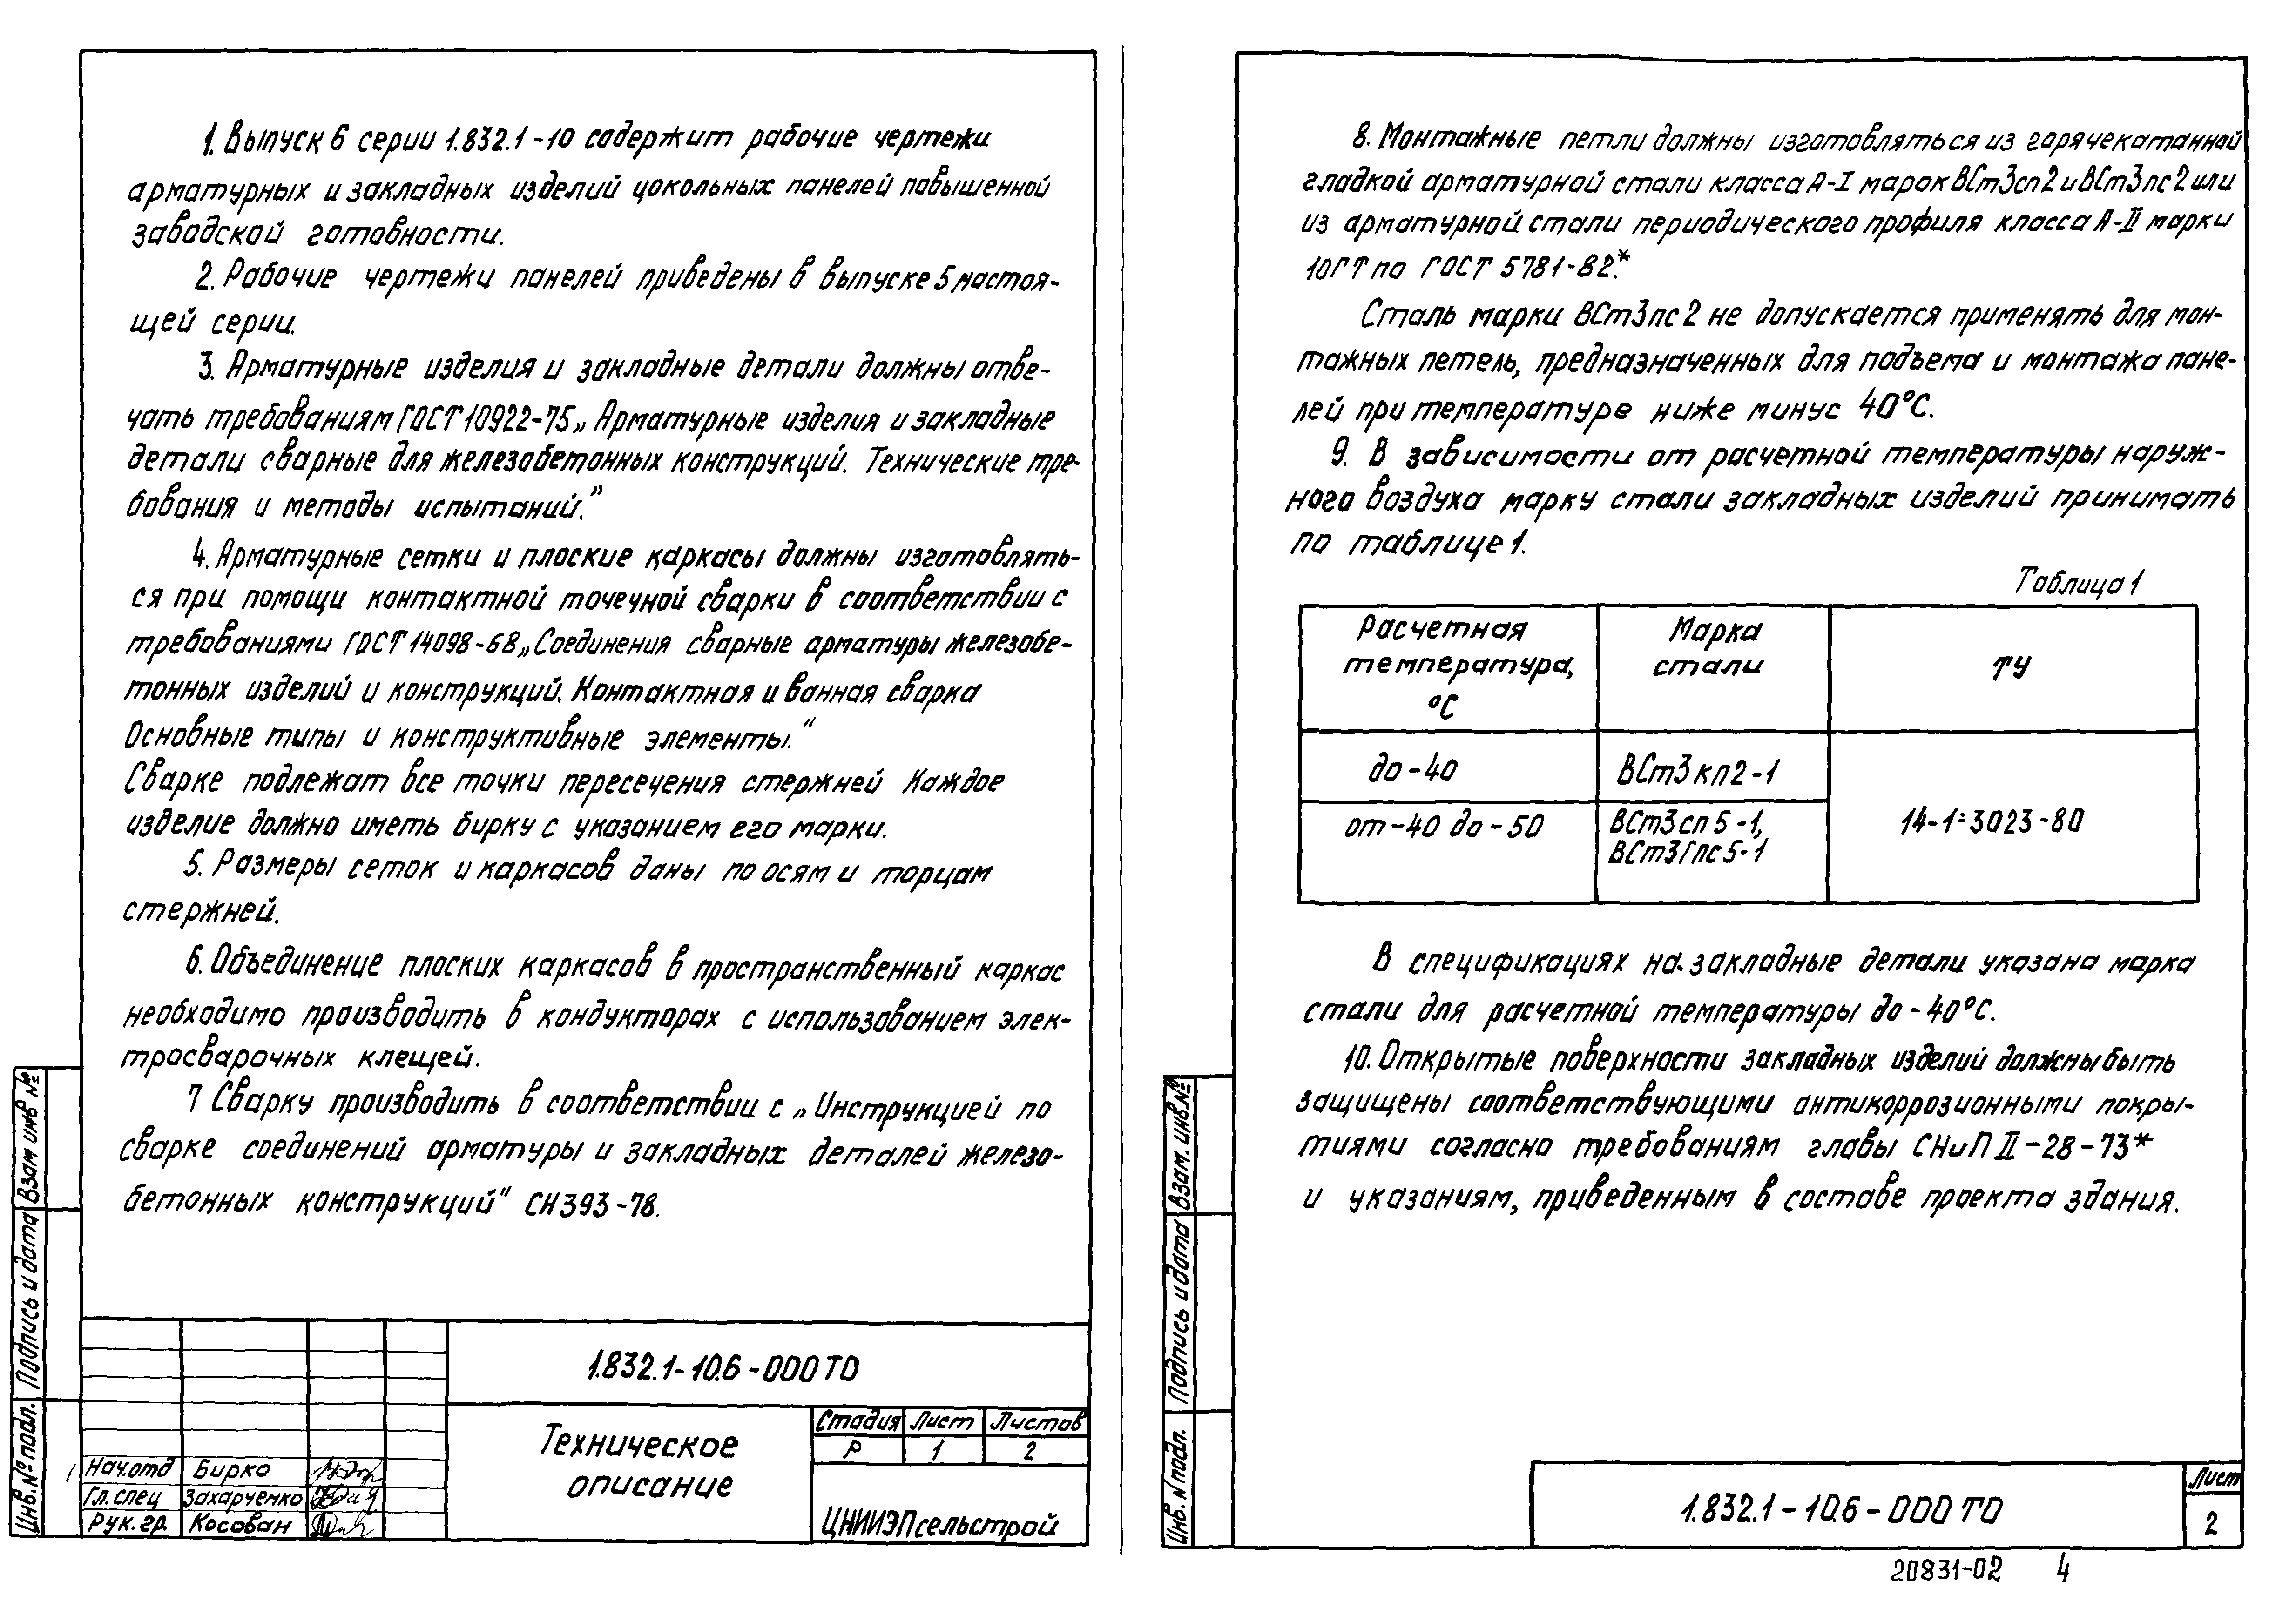 1. Выпуск 6 серии 1.832.1-10 содержит рабочие чертежи
арматурных и закладных изделий цокольных панелей повышенной
заводской готовности.
2. Рабочие чертежи панелей приведены в выпуске 5 настоя-
щей серии.
3. Арматурные изделия и закладные детали должны отве-
чать требованиям ГОСТ 10922-75 „Арматурные изделия и закладные
детали сварные для железобетонных конструкций. Технические тре-
бования и методы испытаний."
4. Арматурные сетки и плоские каркасы должны изготовлять-
ся при помощи контактной точечной сварки в соответствии с
требованиями ГОСТ 14098-68 „Соединения сварные арматуры железобе-
тонных изделий и конструкций. Контактная и ванная сварка
Основные типы и конструктивные элементы."
Сварке подлежат все точки пересечения стержней Каждое
изделие должно иметь бирку с указанием его марки.
5. Размеры сеток и каркасов даны по осям и торцам
стержней.
6. Объединение плоских каркасов в пространственный каркас
необходимо производить в кондукторах с использованием элек-
тросварочных клещей.
7 Сварку производить в соответствии с „Инструкцией по
сварке соединений арматуры и закладных деталей железо-
бетонных конструкций" СН 393-78.
Взам инв №
Подпись и дата
Инв. № подл.
1.832.1-10.6-000 ТО
Техническое
описание
Стадия Лист Листов
Р 1 2
Нач.отд Бирко
Гл. спец Захарченко
Рук. гр. Косован
ЦНИИЭПсельстрой
8. Монтажные петли должны изготовляться из горячекатанной
гладкой арматурной стали класса А-I марок ВСт3сп2 и ВСт3пс2 или
из арматурной стали периодического профиля класса А-II марки
10ГТ по ГОСТ 5781-82.*
Сталь марки ВСт3пс2 не допускается применять для мон-
тажных петель, предназначенных для подъема и монтажа пане-
лей при температуре ниже минус 40°С.
9. В зависимости от расчетной температуры наруж-
ного воздуха марку стали закладных изделий принимать
по таблице 1.
Таблица 1
Расчетная
температура,
°С
Марка
стали
ТУ
до -40 ВСт3кп2-1
от -40 до -50 ВСт3сп5-1,
ВСт3Гпс5-1
14-1-3023-80
В спецификациях на закладные детали указана марка
стали для расчетной температуры до -40°С.
10. Открытые поверхности закладных изделий должны быть
защищены соответствующими антикоррозионными покры-
тиями согласно требованиям главы СНиП II-28-73*
и указаниям, приведенным в составе проекта здания.
Взам. инв.№
Подпись и дата
Инв. N подл.
1.832.1-10.6-000 ТО
Лист
2
20831-02 4